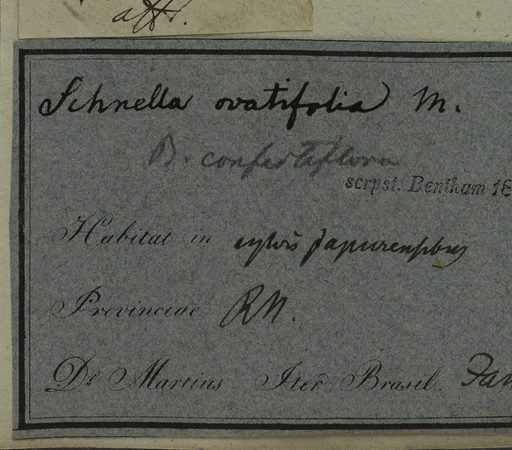 aff.
Schnella ovatifolia M.
B. confertiflora
scrpst. Bentham 18
Habitat in sylvis japurensibus
Provinciae RN.
Dr Martius Iter Brasil. Jan